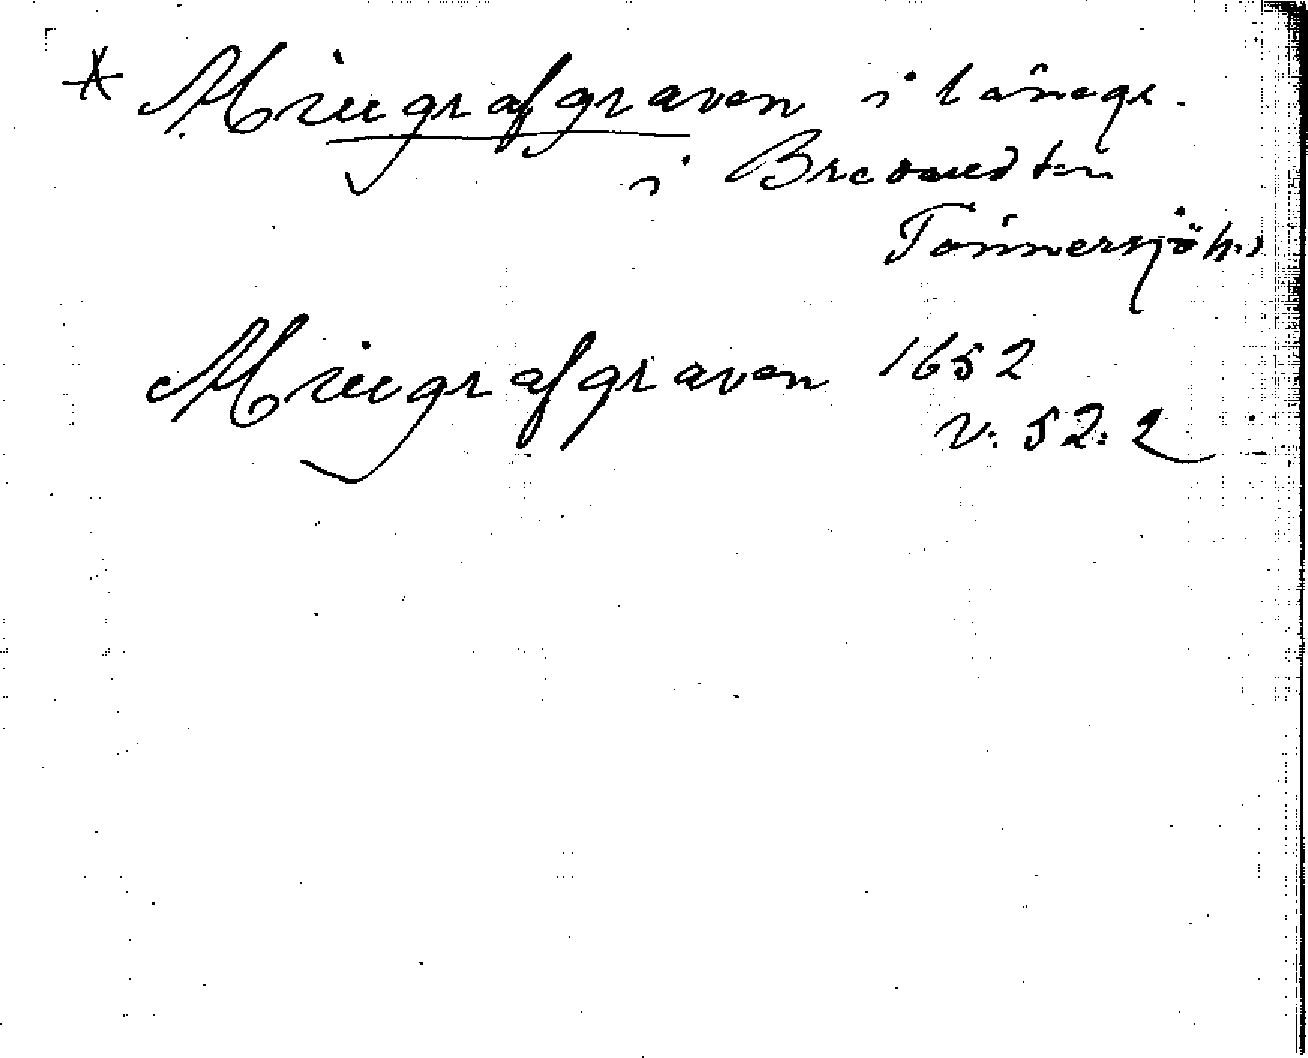 * Miugrafgraven i länege.
i Breared sn
Tönnersjö hd
Miugrafgraven 1652
v: 52: 2